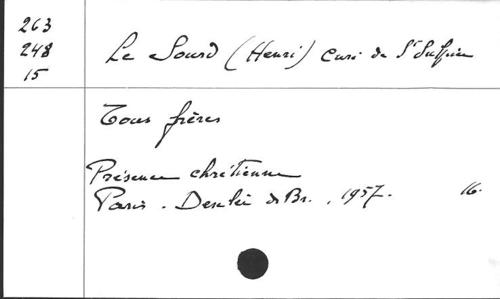 263
248
15
Le Sourd (Henri) Curé de St Sulpice
Tous frères
Présence chrétienne
Paris. Desclée de Br., 1957.
16.